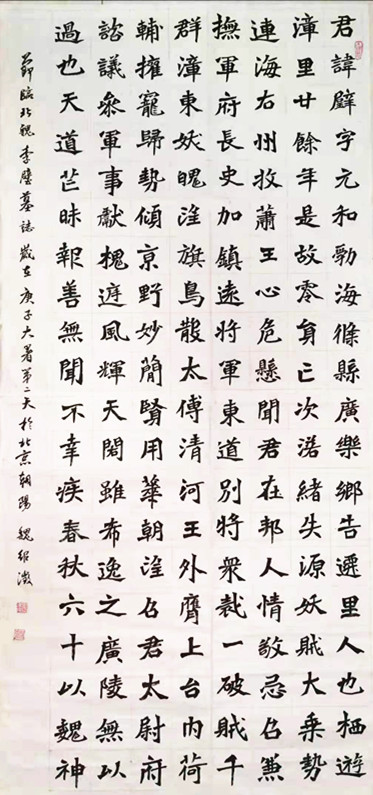 君諱璧字元和勃海條縣廣樂鄉吉遷里人也栖遊
漳里廿餘年是故零身亡次緒失源妖賊大乘勢
連海右州牧蕭王心危懸聞君在邦人情敬忌召兼
撫軍府長史加鎮遠將軍東道別將衆裁一破賊千
群漳東妖醜旗鳥散太傅清河王外膺上台內荷
輔擁寵歸勢傾京野妙簡賢用華朝召君太尉府
諮議參軍事獻槐庭風輝天閣雖希逸之廣陵無以
過也天道芒昧報善無聞不幸疾春秋六十以魏神
節臨北魏李璧墓誌歲在庚子大暑第二天於北京朝陽魏紹